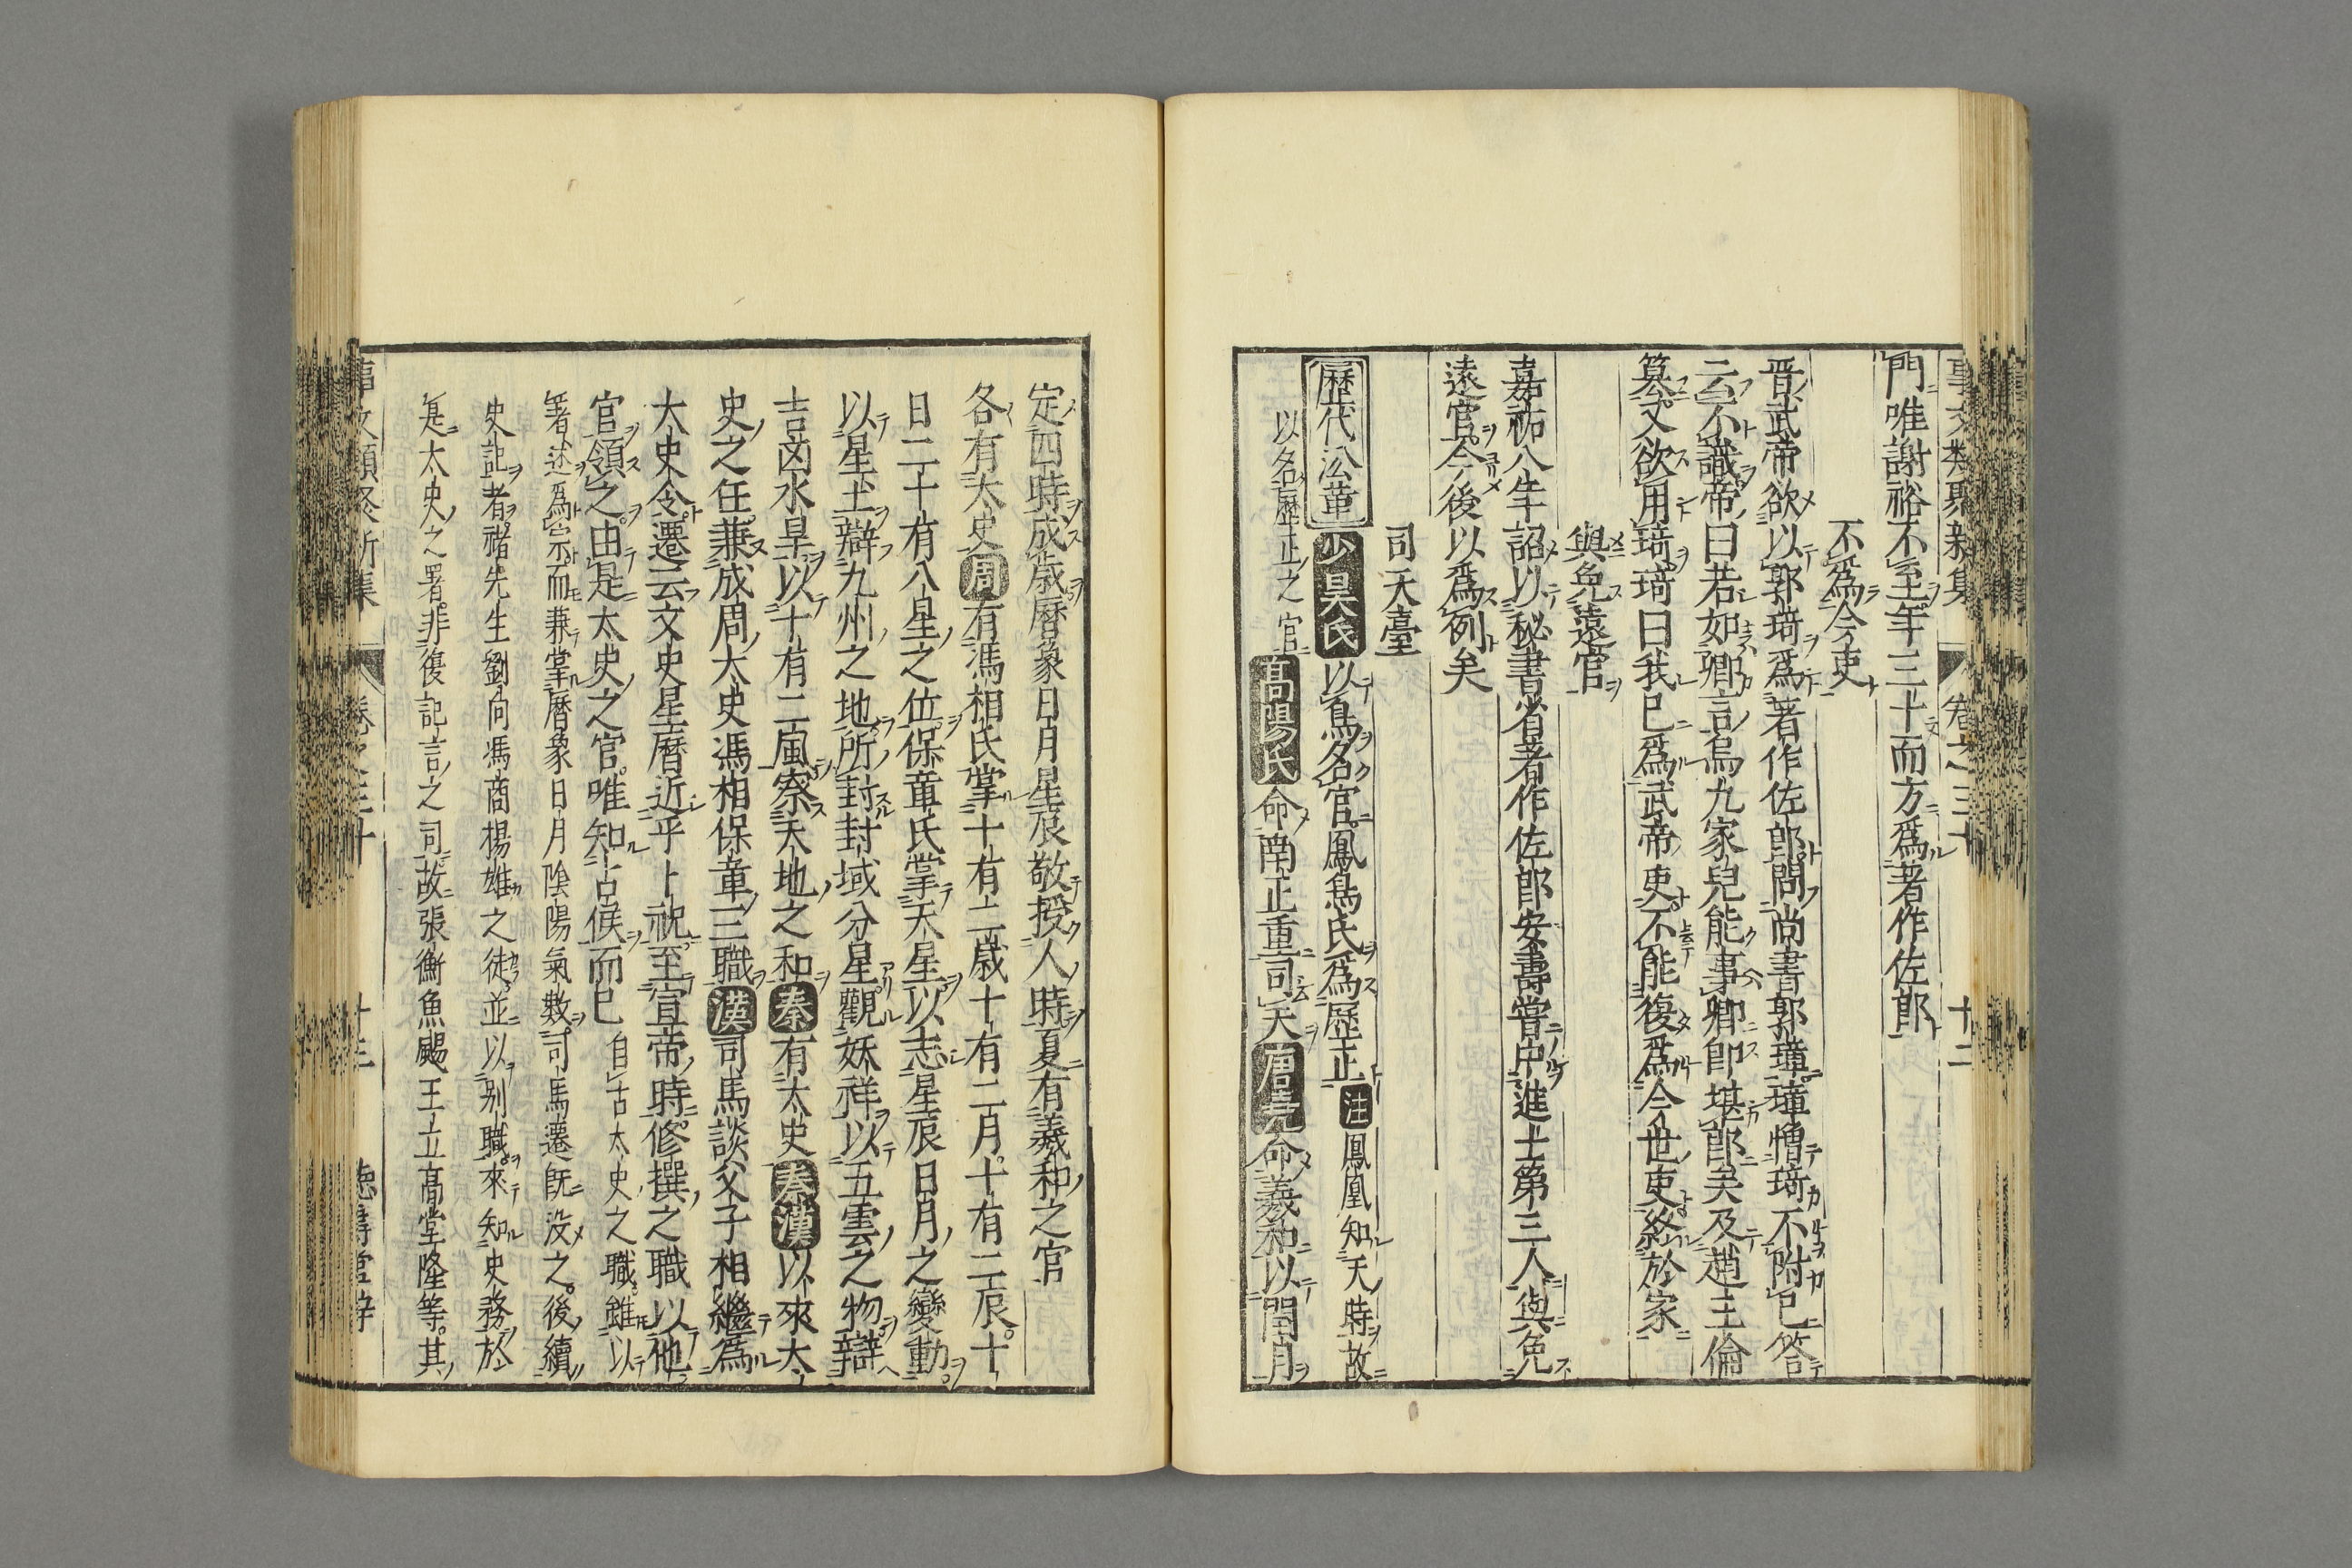 門唯謝裕不至年三十而方爲著作佐郎
不爲今吏
晋武帝欲以郭琦爲著作佐郎問尚書郭璋璋憎琦不附己答
云不識帝曰若如卿言烏九家兒能事卿即堪郎矣及趙王倫
簒又欲用琦琦曰我已爲武帝吏不能復爲今世吏終於家
與免遠官
嘉祐八年詔以秘書省著作佐郎安壽嘗中進士第三人與免
遠官今後以爲例矣
司天臺
歷代沿革 少昊氏以鳥名官鳳鳥氏爲歷正 注 鳳凰知天時故
以名歷正之官 高陽氏命南正重司天 唐堯命羲和以閏月
定四時成歲曆象日月星辰敬授人時夏有羲和之官
各有太史 周有馮相氏掌十有二歲十有二月十有二辰十
日二十有八星之位保章氏掌天星以志星辰日月之變動
以星土辯九州之地所封封域分星觀妖祥以五雲之物辯
吉凶水旱以十有二風察天地之和 秦有太史 秦漢以來太
史之任兼成周太史馮相保章三職 漢司馬談父子相繼爲
太史令遷云文史星曆近乎卜祝至宣帝時修撰之職以他
官領之由是太史之官唯知占候而已 自古太史之職雖以
著述爲宗而兼掌曆象日月陰陽氣數司馬遷既没之後續
史記者禇先生劉向馮商楊雄之徒並以别職來知史務於
是太史之署非復記言之司故張衡魚颺王立高堂隆等其